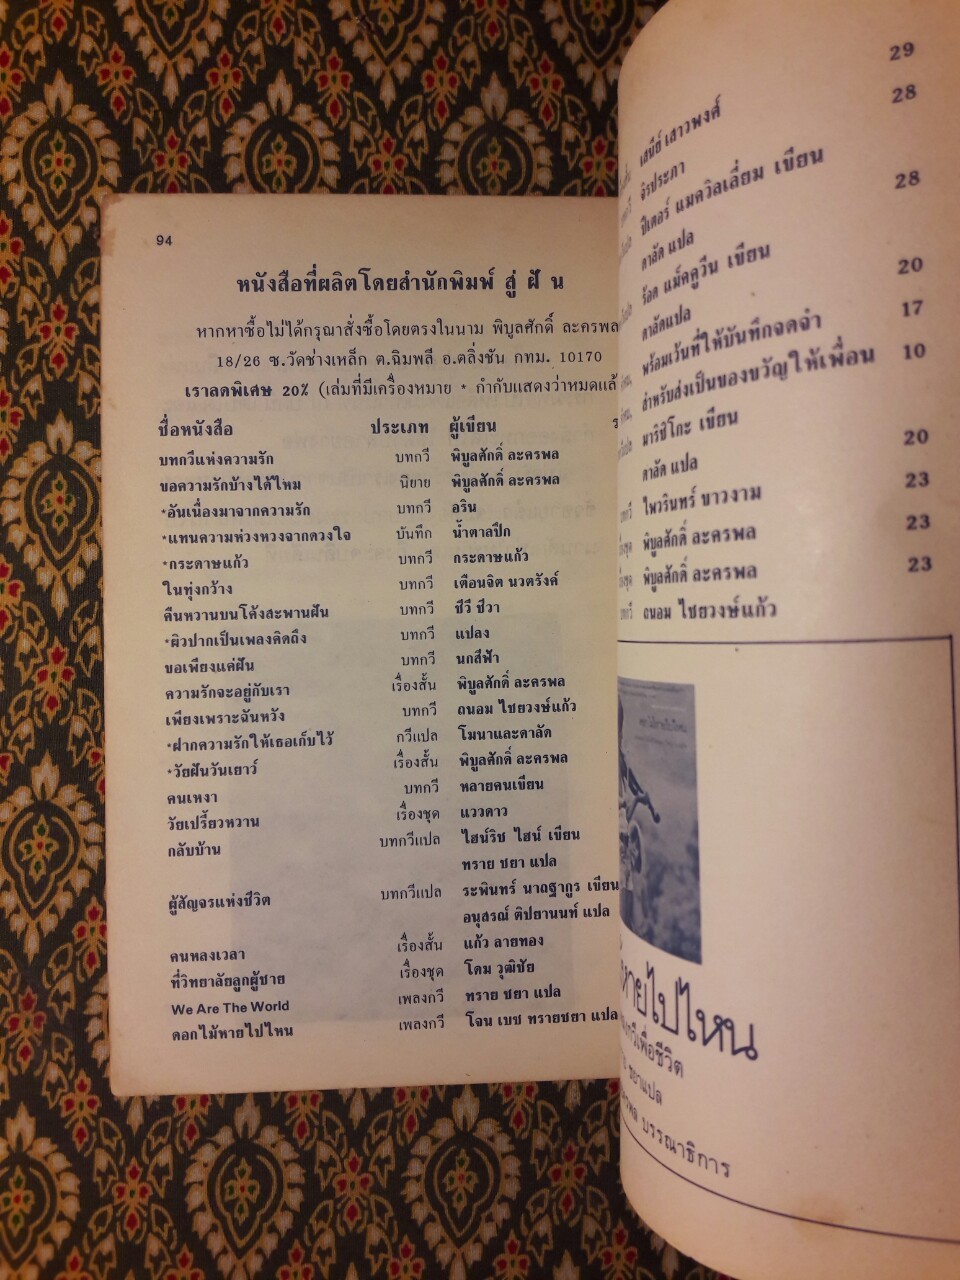 94
หนังสือที่ผลิตโดยสำนักพิมพ์ สู่ ฝัน
หากหาซื้อไม่ได้กรุณาสั่งซื้อโดยตรงในนาม พิบูลศักดิ์ ละครพล
18/26 ซ.วัดช่างเหล็ก ต.ฉิมพลี อ.ตลิ่งชัน กทม. 10170
เราลดพิเศษ 20% (เล่มที่มีเครื่องหมาย * กำกับแสดงว่าหมดแล้
ชื่อหนังสือ ประเภท ผู้เขียน
บทกวีแห่งความรัก บทกวี พิบูลศักดิ์ ละครพล
ขอความรักบ้างได้ไหม นิยาย พิบูลศักดิ์ ละครพล
*อันเนื่องมาจากความรัก บทกวี อริน
*แทนความห่วงหวงจากดวงใจ บันทึก น้ำตาลปึก
*กระดาษแก้ว บทกวี กระดาษแก้ว
ในทุ่งกว้าง บทกวี เตือนจิต นวตรังค์
คืนหวานบนโค้งสะพานฝัน บทกวี ชีวี ชีวา
*ผิวปากเป็นเพลงคิดถึง บทกวี แปลง
ขอเพียงแค่ฝัน บทกวี นกสีฟ้า
ความรักจะอยู่กับเรา เรื่องสั้น พิบูลศักดิ์ ละครพล
เพียงเพราะฉันหวัง บทกวี ถนอม ไชยวงษ์แก้ว
*ฝากความรักให้เธอเก็บไว้ กวีแปล โมนาและดาลัด
*วัยฝันวันเยาว์ เรื่องสั้น พิบูลศักดิ์ ละครพล
คนเหงา บทกวี หลายคนเขียน
วัยเปรี้ยวหวาน เรื่องชุด แววดาว
กลับบ้าน บทกวีแปล ไฮน์ริช ไฮน์ เขียน
ทราย ชยา แปล
ผู้สัญจรแห่งชีวิต บทกวีแปล ระพินทร์ นาถฐากูร เขียน
อนุสรณ์ ติปยานนท์ แปล
คนหลงเวลา เรื่องสั้น แก้ว ลายทอง
ที่วิทยาลัยลูกผู้ชาย เรื่องชุด โดม วุฒิชัย
We Are The World เพลงกวี ทราย ชยา แปล
ดอกไม้หายไปไหน เพลงกวี โจน เบซ ทรายชยา แปล
29
เสนีย์ เสาวพงศ์ 28
จิรประภา
ปีเตอร์ แมควิลเลี่ยม เขียน 28
ดาลัด แปล
ร็อด แม็คคูวีน เขียน 20
ดาลัดแปล
พร้อมเว้นที่ให้บันทึกจดจำ 17
สำหรับส่งเป็นของขวัญให้เพื่อน 10
มาริชิโกะ เขียน
ดาลัด แปล 20
ไพวรินทร์ ขาวงาม 23
พิบูลศักดิ์ ละครพล 23
พิบูลศักดิ์ ละครพล 23
ถนอม ไชยวงษ์แก้ว
หายไปไหน
กวีเพื่อชีวิต
ชยาแปล
บรรณาธิการ